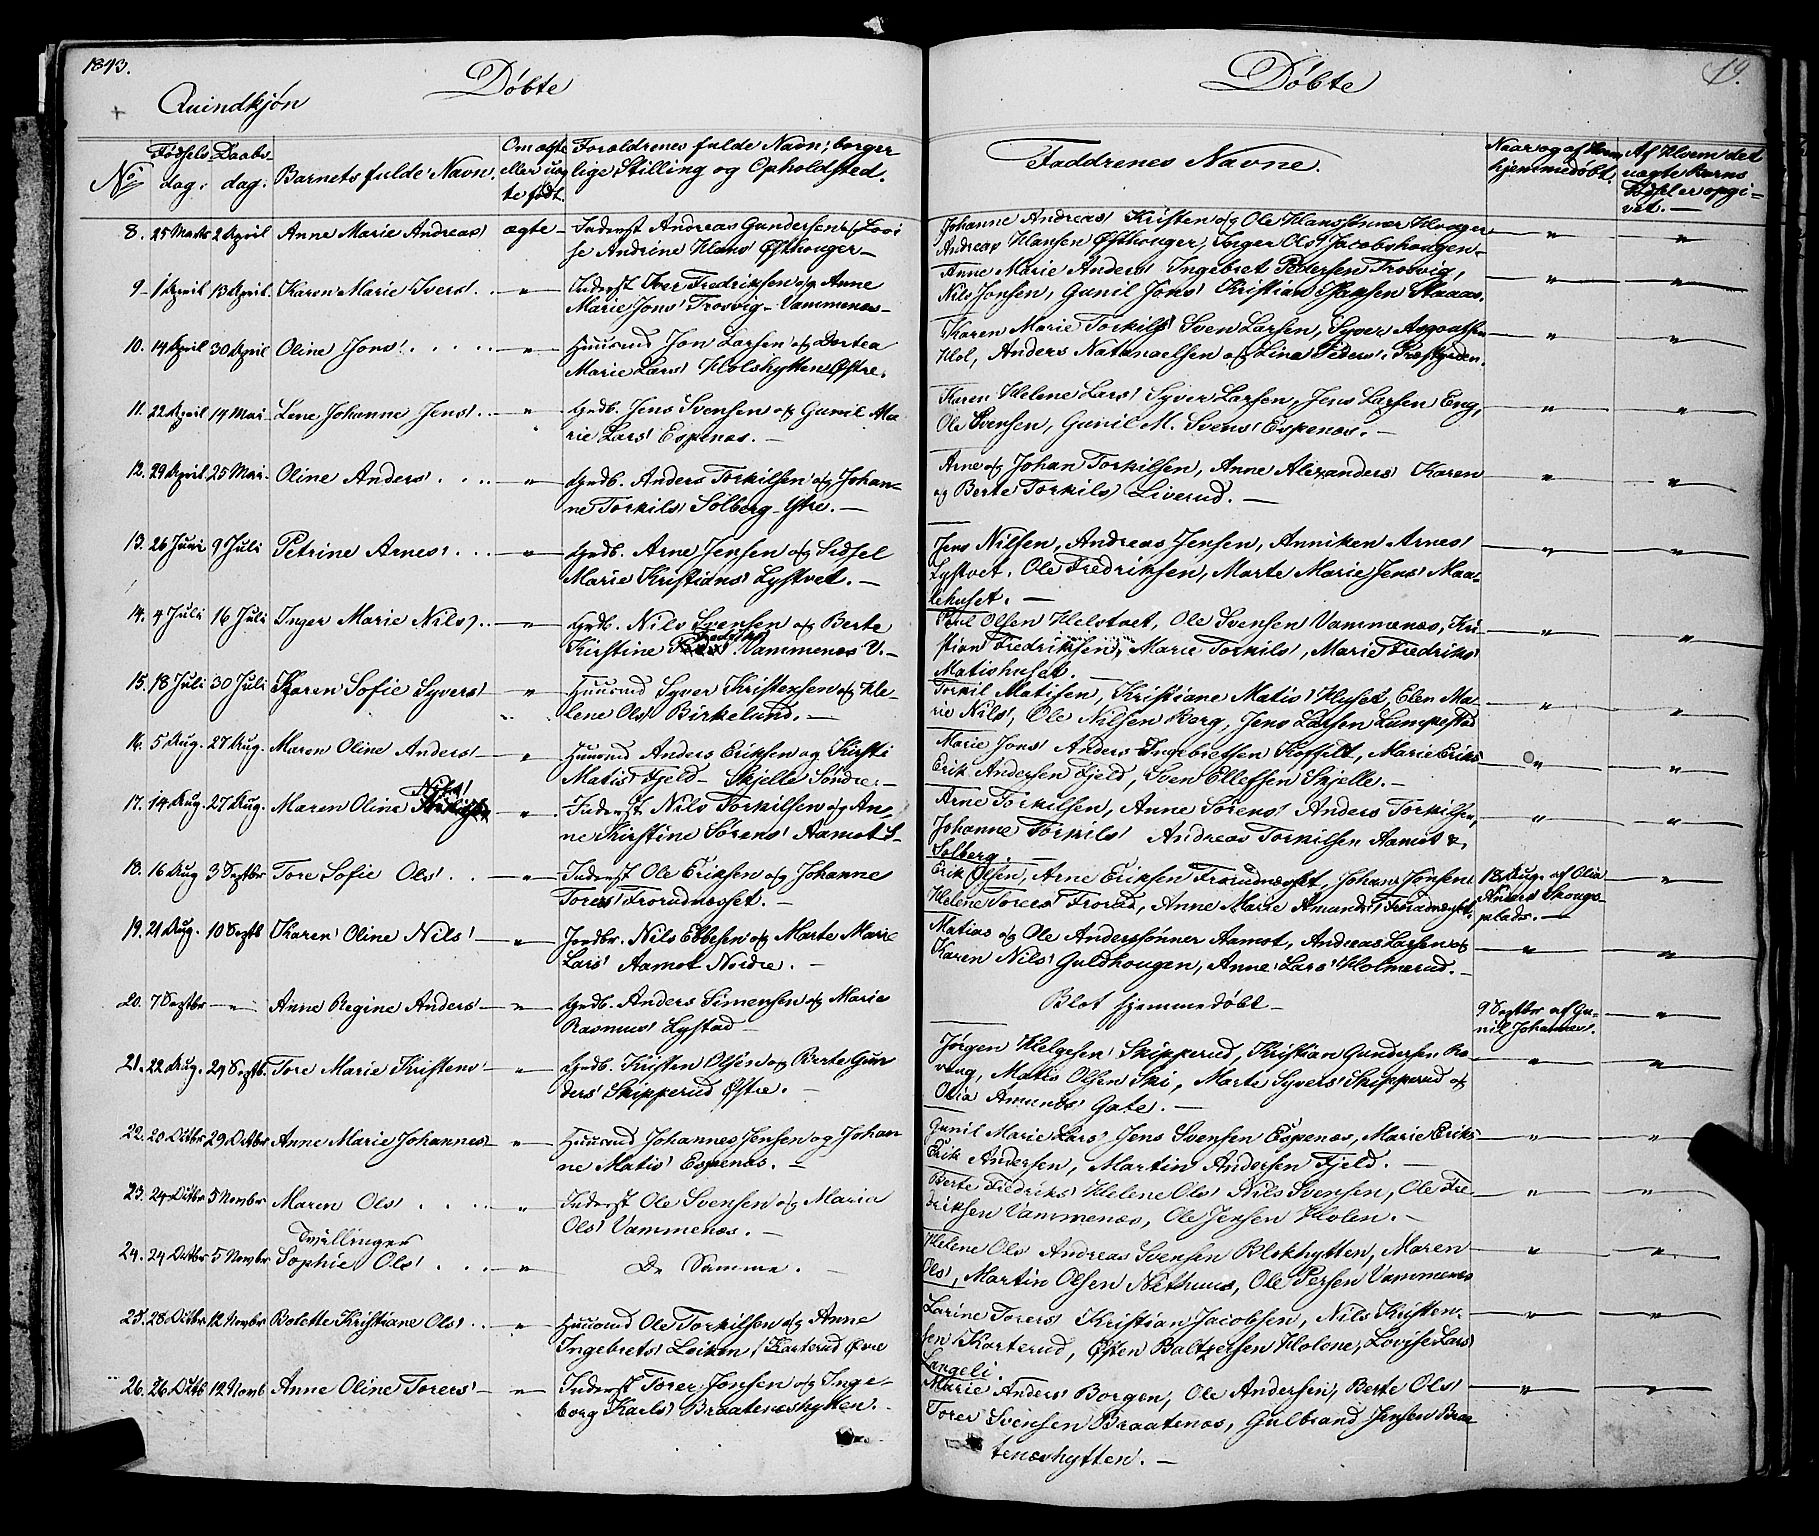 1843.
Döbte
Qvindkjøn
No
Fødsels dag.
Daabs dag.
Barnets fulde Navn.
Om ægte eller uægte født.
Forældrenes fulde Navn, borgerlige Stilling og Opholdsted.
8. 25 Marts 2 April Anne Marie Andreas' ægte Inderst Andreas Gundersen og Lovi
se Andrine Hans' Østhouger
9 1 April 13 April Karen Marie Ivers' " Inderst Iver Fredriksen og Anne
Marie Jons' Trosvig - Vammenæs
10. 14 April 30 April Oline Jons' " Huusmd Jon Larsen og Dortea
Marie Lars' Holshytten Østre.
11. 22 April 14 Mai Lene Johanne Jens' " Grdb. Jens Svensen og Gunil Ma
rie Lars' Espenæs.
12. 29 April 25 Mai Oline Anders' " Grdb. Anders Torkilsen og Johan
ne Torkils' Solberg - Ystre.
13. 26 Juni 9 Juli Petrine Arnes' " Grdb. Arne Jensen og Sidsel
Marie Kristians' Lystvet.
14. 4 Juli 16 Juli Inger Marie Nils' " Grdb. Nils Svensen og Berte
Kirstine Fredriks' Vammenæs V.
15. 18 Juli 30 Juli Karen Sofie Syvers' " Huusmd Syver Kristensen og He-
lene Ols' Birkelund.
16. 5 Aug. 27 Aug. Maren Oline Anders' " Huusmd Anders Eriksen og Kirsti
Matis' Fjeld - Skjelle Søndre.
17. 14 Aug. 27 Aug. Maren Oline Nils' " Inderst Nils Torkilsen og An-
ne Kirstine Sørens' Aamot S.
18. 16 Aug 3 Septbr Tore Sofie Ols' " Inderst Ole Eriksen og Johanne
Tores' Frorudnæsset.
19. 21 Aug. 10 Septb Karen Oline Nils' " Jordbr. Nils Ebbesen og Marte Marie
Lars' Aamot Nordre.
20. 7 Septbr " Anne Regine Anders' " Grdb. Anders Simensen og Marie
Rasmus' Lystad
21. 22 Aug. 24 Septb. Tore Marie Kristens' " Grdb. Kristen Olsen og Berte Gun
ders' Skipperud Østre.
22. 20 Octbr 29 Octbr Anne Marie Johannes' " Huusmd Johannes Jensen og Johan
ne Matis' Espenæs.
23. 24 Octbr 5 Novbr Maren Ols' " Inderst Ole Svensen og Maria
Ols' Vammenæs.
Tvillinger
24. 24 Octbr 5 Novbr Sophie Ols' " De Samme.
25. 28 Octbr 12 Novbr Bolette Kristiane Ols' " Huusmd Ole Torkilsen og Anne
Ingebrets' Løiken / Karterud Øvre
26. 26 Octb 12 Novb Anne Oline Torers' " Inderst Torer Jonsen og Inge-
borg Karls' Braatenæshytten.
Döbte
19.
Faddrenes Navne.
Naar og af Hvem hjemmedøbt.
Af Hvem det uægte Barns Fødsel er opgivet.
Johanne Andreas' Kristen og Ole Hanssønner Houger
Andreas Hansen Østhouger, Inger Ols' Jacobshougen
Anne Marie Anders' Ingebret Pedersen Trosvig,
Nils Jonsen, Gunil Jons' Kristian Hansen
Karen Marie Torkils' Sven Larsen, Syver
Hol, Anders Natanaelsen og Lina Peders' Præstgrden.
Karen Helene Lars' Syver Larsen, Jens Larsen Eng,
Ole Svensen, Gunil M. Svens' Espenæs.
Arne og Johan Torkilsen, Anne Alexanders' Karen
og Berte Torkils' Liverud.
Jens Nilsen, Andreas Jensen, Anniken Arnes'
Lystvet. Ole Fredriksen, Marte Marie Jens' Maa-
lehuset.
Poul Olsen Helstvet, Ole Svensen Vammenæs, Kri
stian Fredriksen, Marie Torkils', Marie Fredriks'
Matishuset.
Torkil Matisen, Kristiane Matis' Huset, Elen Ma-
rie Nils', Ole Nilsen Borg, Jens Larsen
Marie Jons' Anders Ingebretsen Toffelt, Marie Eriks'
Erik Andersen Fjeld, Sven Ellefsen Skjelle.
Arne Torkilsen, Anne Sørens' Anders Torkilsen,
Johanne Torkils' Andreas Torkilsen Aamot &
Solberg.
Erik Olsen, Arne Eriksen Frorudnæsset, Johans Jonsen
Helene Torers' Frorud, Anne Marie Amunds' Frorudnæsset. 18 Aug. af Olia
Anders' Skougs-
pleds.
Matias og Ole Anderssønner Aamot, Andreas Larsen og
Karen Nils' Guldhougen, Anne Lars' Holmerud.
Blot Hjemmedøbt 9 Septbr af Gu-
nil Johannes'.
Jørgen Helgesen Skipperud, Kristian Gundersen Ra
vang, Matis Olsen Ski, Marte Syvers' Skipperud og
Olia Amunds' Gate.
Gunil Marie Lars' Jens Svensen Espenæs, Marie Eriks'
Erik Andersen, Martin Andersen Fjeld.
Berte Fredriks' Helene Ols' Nils Svensen, Ole Fre
driksen Vammenæs, Ole Jensen Holen.
Helene Ols' Andreas Svensen Blokhytten, Maren
Ols', Martin Olsen Næthuus, Ole Persen Vammenæs
Larine Torers' Kristian Jacobsen, Nils Kristen-
sen Karterud, Østen Baltzersen Holene, Lovise Lars'
Langeli.
Marie Anders' Borgen, Ole Andersen, Berte Ols'
Torer Svensen Braatenæs, Gulbrand Jensen Braa-
tenæshytten.